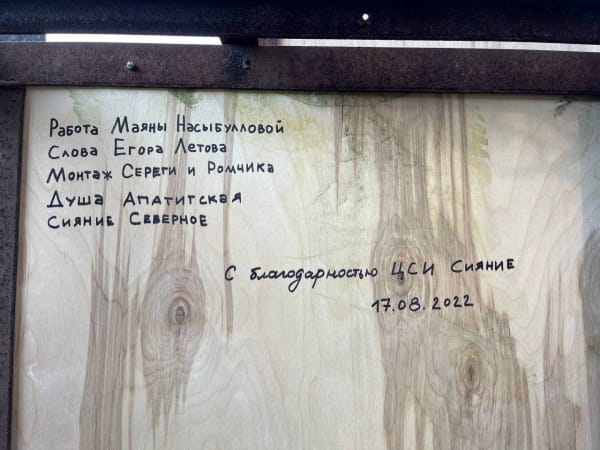 Работа Маяны Насыбулловой
Слова Егора Летова
Монтаж Сереги и Ромчика
Душа Апатитская
Сияние Северное
С благодарностью ЦСИ Сияние
17.08.2022